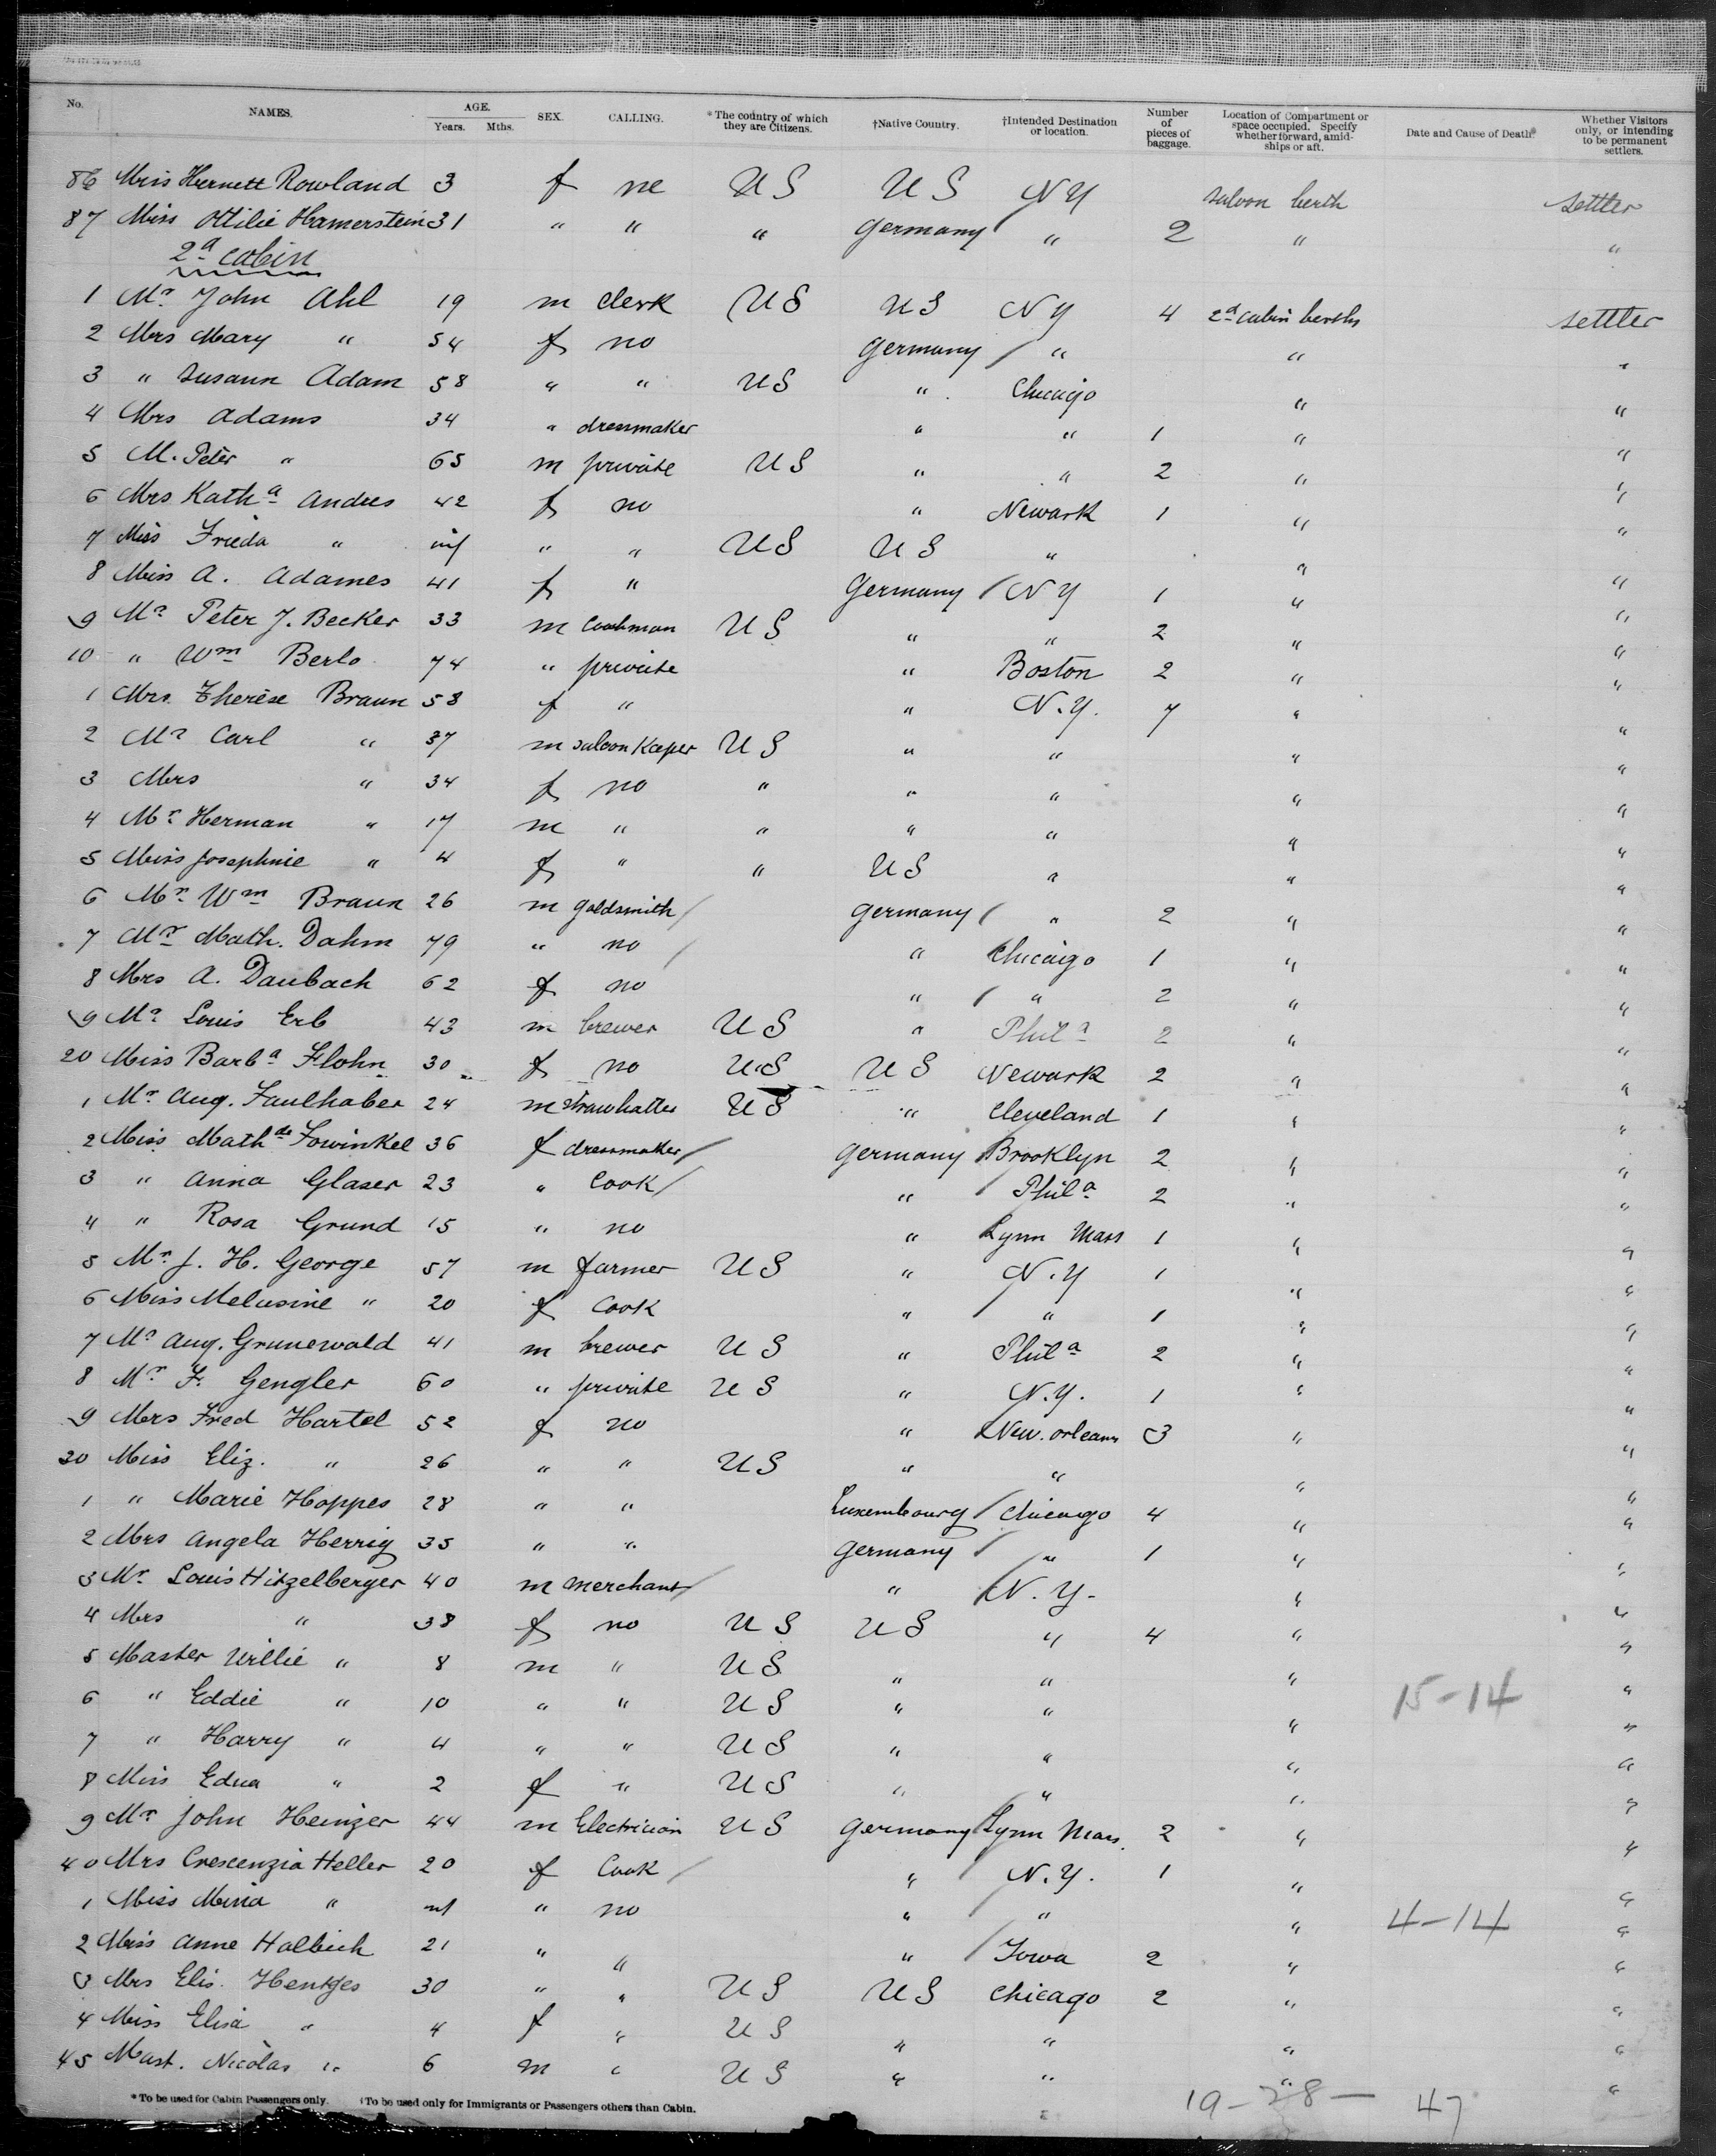 No. NAMES. AGE. Years. Mths. SEX. CALLING. *The country of which they are Citizens. †Native Country. †Intended Destination or location. Number of pieces of baggage. Location of Compartment or space occupied. Specify whether forward, amidships or aft. Date and Cause of Death. Whether Visitors only, or intending to be permanent settlers.
86 Rowland 3 f no US US NY saloon berth settler
87 Miss Ottilie Hamerstein 31 " " " Germany " 2 " "
2d cabin
1 Mr John Ahl 19 m clerk US US NY 4 2d cabin berths settler
2 Mrs Mary " 54 f no Germany / " " "
3 " Susann Adam 58 " " US " Chicago " "
4 Mrs Adams 34 " dressmaker " " 1 " "
5 M. Peter " 65 m private US " " 2 " "
6 Mrs Katha Andres 42 f no " Newark 1 " "
7 Miss Frieda " inf " " US US " " "
8 Miss A. Adames 41 f " Germany / NY 1 " "
9 Mr Peter J. Becker 33 m US " " 2 " "
10 " Wm Berlo 74 " private " Boston 2 " "
1 Mrs. Therèse Braun 58 f " " N.Y. 7 " "
2 Mr Carl " 37 m saloon Keeper US " " " "
3 Mrs " 34 f no " " " " "
4 Mr Herman " 17 m " " " " " "
5 Miss Josephine " 4 f " " US " " "
6 Mr Wm Braun 26 m goldsmith / Germany / " 2 " "
7 Mr Math. Dahm 79 " no / " Chicaigo 1 " "
8 Mrs A. Daubach 62 f no " / " 2 " "
9 Mr Louis Erb 43 m brewer US " Phila 2 " "
20 Miss Barba Flohn 30 f no US US Newark 2 " "
1 Mr Aug. Faulhaber 24 m strawhatter US " Cleveland 1 " "
2 Miss Mathde Fowinkel 36 f dressmaker / Germany Brooklyn 2 " "
3 " Anna Glaser 23 " Cook / " / Phila 2 " "
4 " Rosa Grund 15 " no " Lynn Mass 1 " "
5 Mr J. H. George 57 m farmer US " N.Y 1 " "
6 Miss Melusine " 20 f Cook " / " 1 " "
7 Mr Aug. Grunewald 41 m brewer US " Phila 2 " "
8 Mr F. Gengler 60 " private US " N.Y. 1 " "
9 Mrs Fred Hartel 52 f no " New. orleans 3 " "
30 Miss Eliz. " 26 " " US " " " "
1 " Marie Hoppes 28 " " Luxembourg / Chicago 4 " "
2 Mrs Angela Herrig 35 " " Germany / " 1 " "
3 Mr Louis Hitzelberger 40 m merchant / " / N.Y. " "
4 Mrs " 38 f no US US " 4 " "
5 Master Willie " 8 m " US " " " "
6 " Eddie " 10 " " US " " " 15-14 "
7 " Harry " 4 " " US " " " "
8 Miss Edna " 2 f " US " " " "
9 Mr John Heinzer 44 m Electrician US Germany Lynn Mass. 2 " "
40 Mrs Crescenzia Heller 20 f Cook / " N.Y. 1 " "
1 Miss Mina " inf " no " / " " 4-14 "
2 Miss Anne Halbich 21 " " " / Iowa 2 " "
3 Mrs Elis. Hentges 30 " " US US Chicago 2 " "
4 Miss Elisa " 4 f " US " " " "
45 Mast. Nicolas " 6 m " US " " " "
19-28- 47
*To be used for Cabin Passengers only. †To be used only for Immigrants or Passengers others than Cabin.